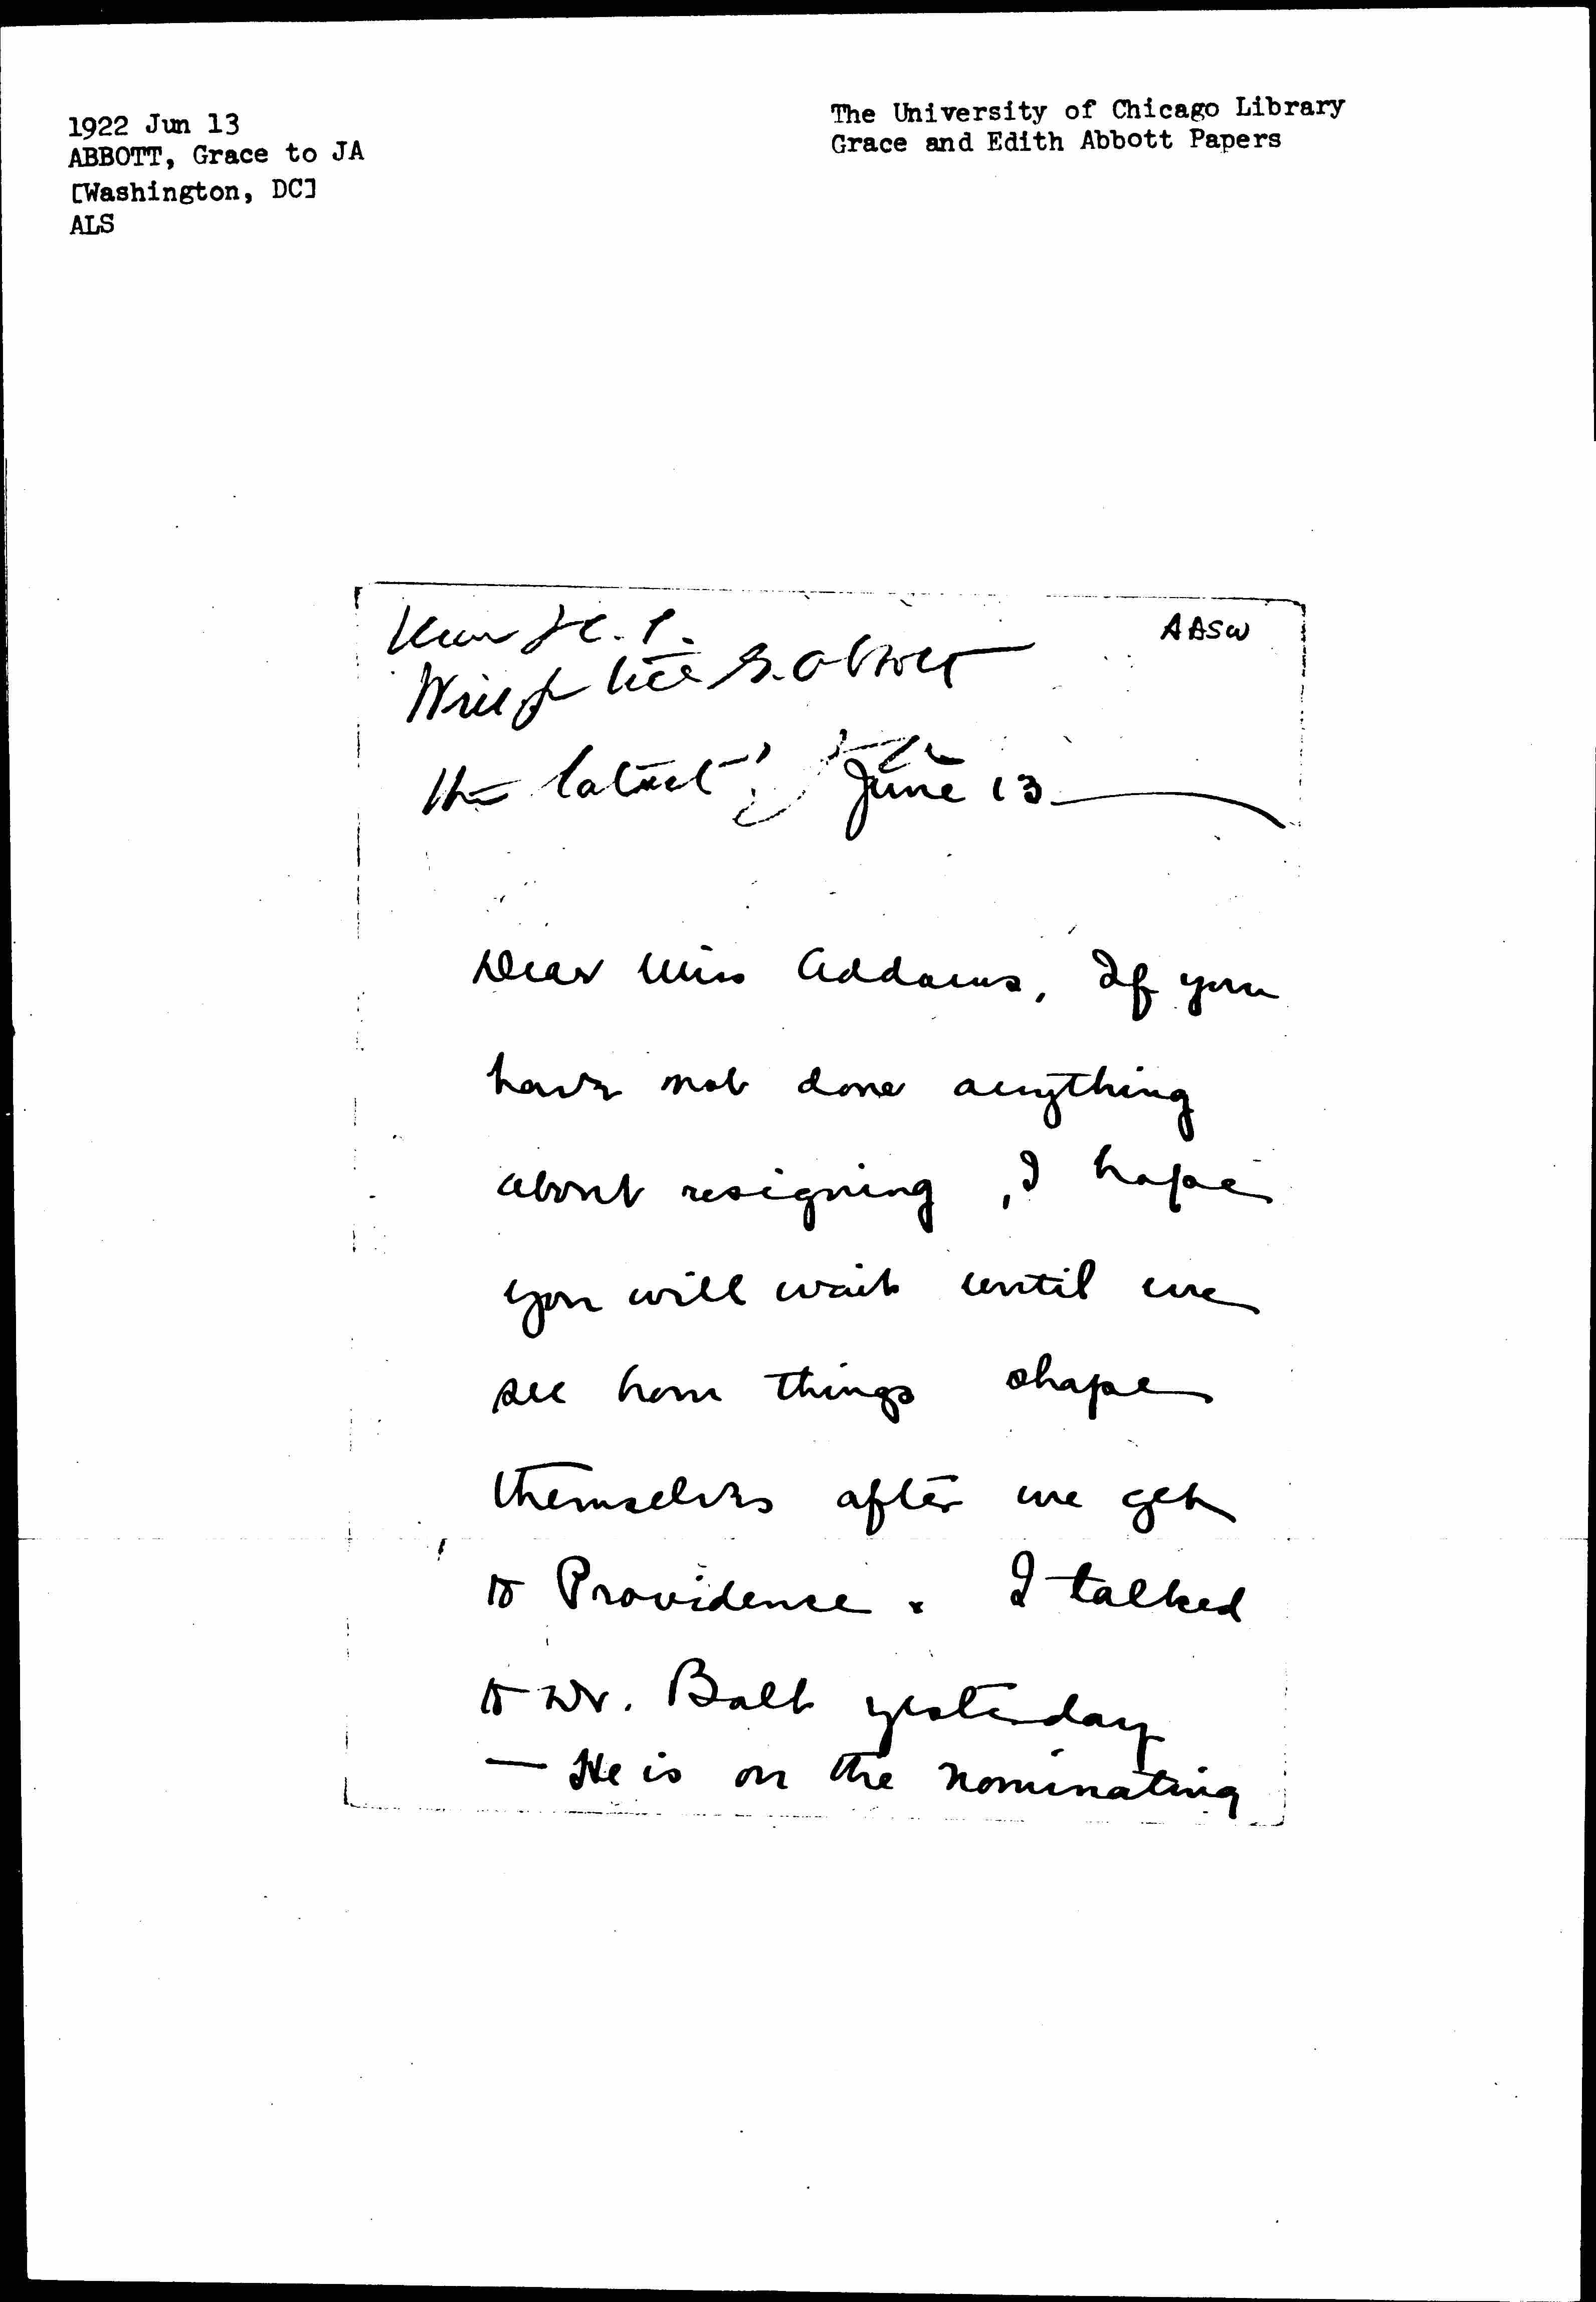 1922 Jun 13
ABBOTT, Grace to JA
[Washington, DC]
ALS
The University of Chicago Library
Grace and Edith Abbott Papers
AASW
the latest
June 13
Dear Miss Addams, If you
have not done anything
about resigning, I hope
you will wait until we
see how things shape
themselves after we get
to Providence. I talked
to Dr. Balt yesterday
— He is on the nominating